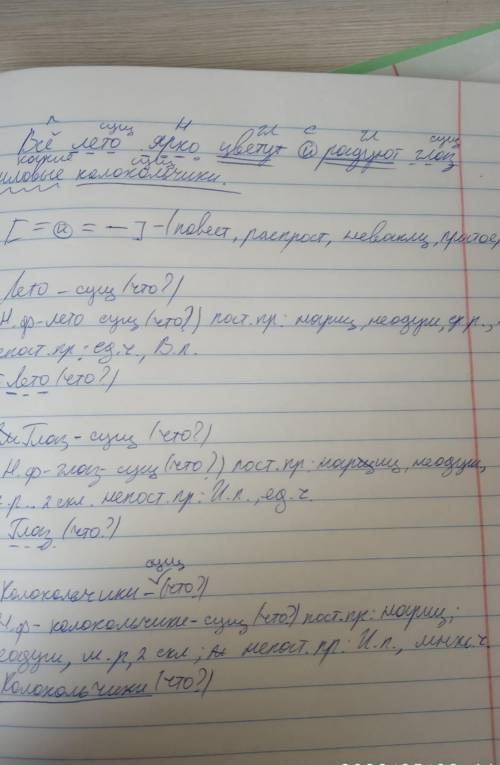 л сущ Н гл с гл сущ
Всё лето ярко цветут и радуют глаз
какие сущ
иловые колокольчики.
[= и = —] – (повест, распрост, невоскл, простое,
Лето – сущ (что?)
Н.ф – лето сущ (что?) пост.пр: нариц, неодуш, ср.р.,
непост.пр: ед.ч., В.п.
Лето (что?)
Глаз – сущ (что?)
Н.ф – глаз – сущ (что?) пост.пр: нариц, неодуш,
.р., 2 скл. непост.пр: И.п., ед.ч.
Глаз (что?)
сущ
Колокольчики – (что?)
Н.ф – колокольчики – сущ (что?) пост.пр: нариц;
неодуш, м.р, 2 скл; непост.пр: И.п., множ.ч.
Колокольчики (что?)